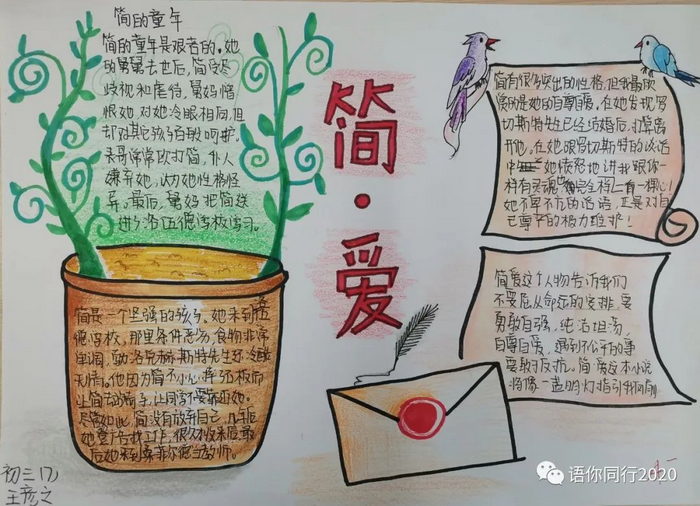 简的童年
简的童年是艰者的。她
的舅舅去世后,简受尽
歧视和虐待,舅妈憎
恨她,对她冷眼相同,但
却对其它孩子百般呵护。
表哥常常殴打简,仆人
嫌弃她,认为她性格怪
异。最后,舅妈把简送
进了洛伍德学校学习。
简是一个坚强的孩子,她来到
德学校,那里条件恶劣,食物非常
单调,勃洛克赫斯特先生还冷酷
无情。他因为简不小心摔
让简去
尽管如此,简没有放弃自己,几年后
她登广告找工作,很久
后她来到桑菲尔德当教师。
简·爱
简有很多突出的性格,但我最欣
赏的是她的自尊自强,在她发现罗
切斯特先生已经结婚后,打算离
开他,在她跟罗切斯特的谈话
中 她愤怒地讲我跟你一
样有灵魂 一颗心!
她不卑不亢的话语,正是对自
己尊严的极力维护!
简爱这个人物告诉我们
不要屈从命运的安排,要
勇敢自强,纯洁坦荡,
自尊自爱,遇到不公平的事
要敢于反抗。简爱这本小说
将像一盏明灯指引我们前
初三17
王彦之
语你同行2020